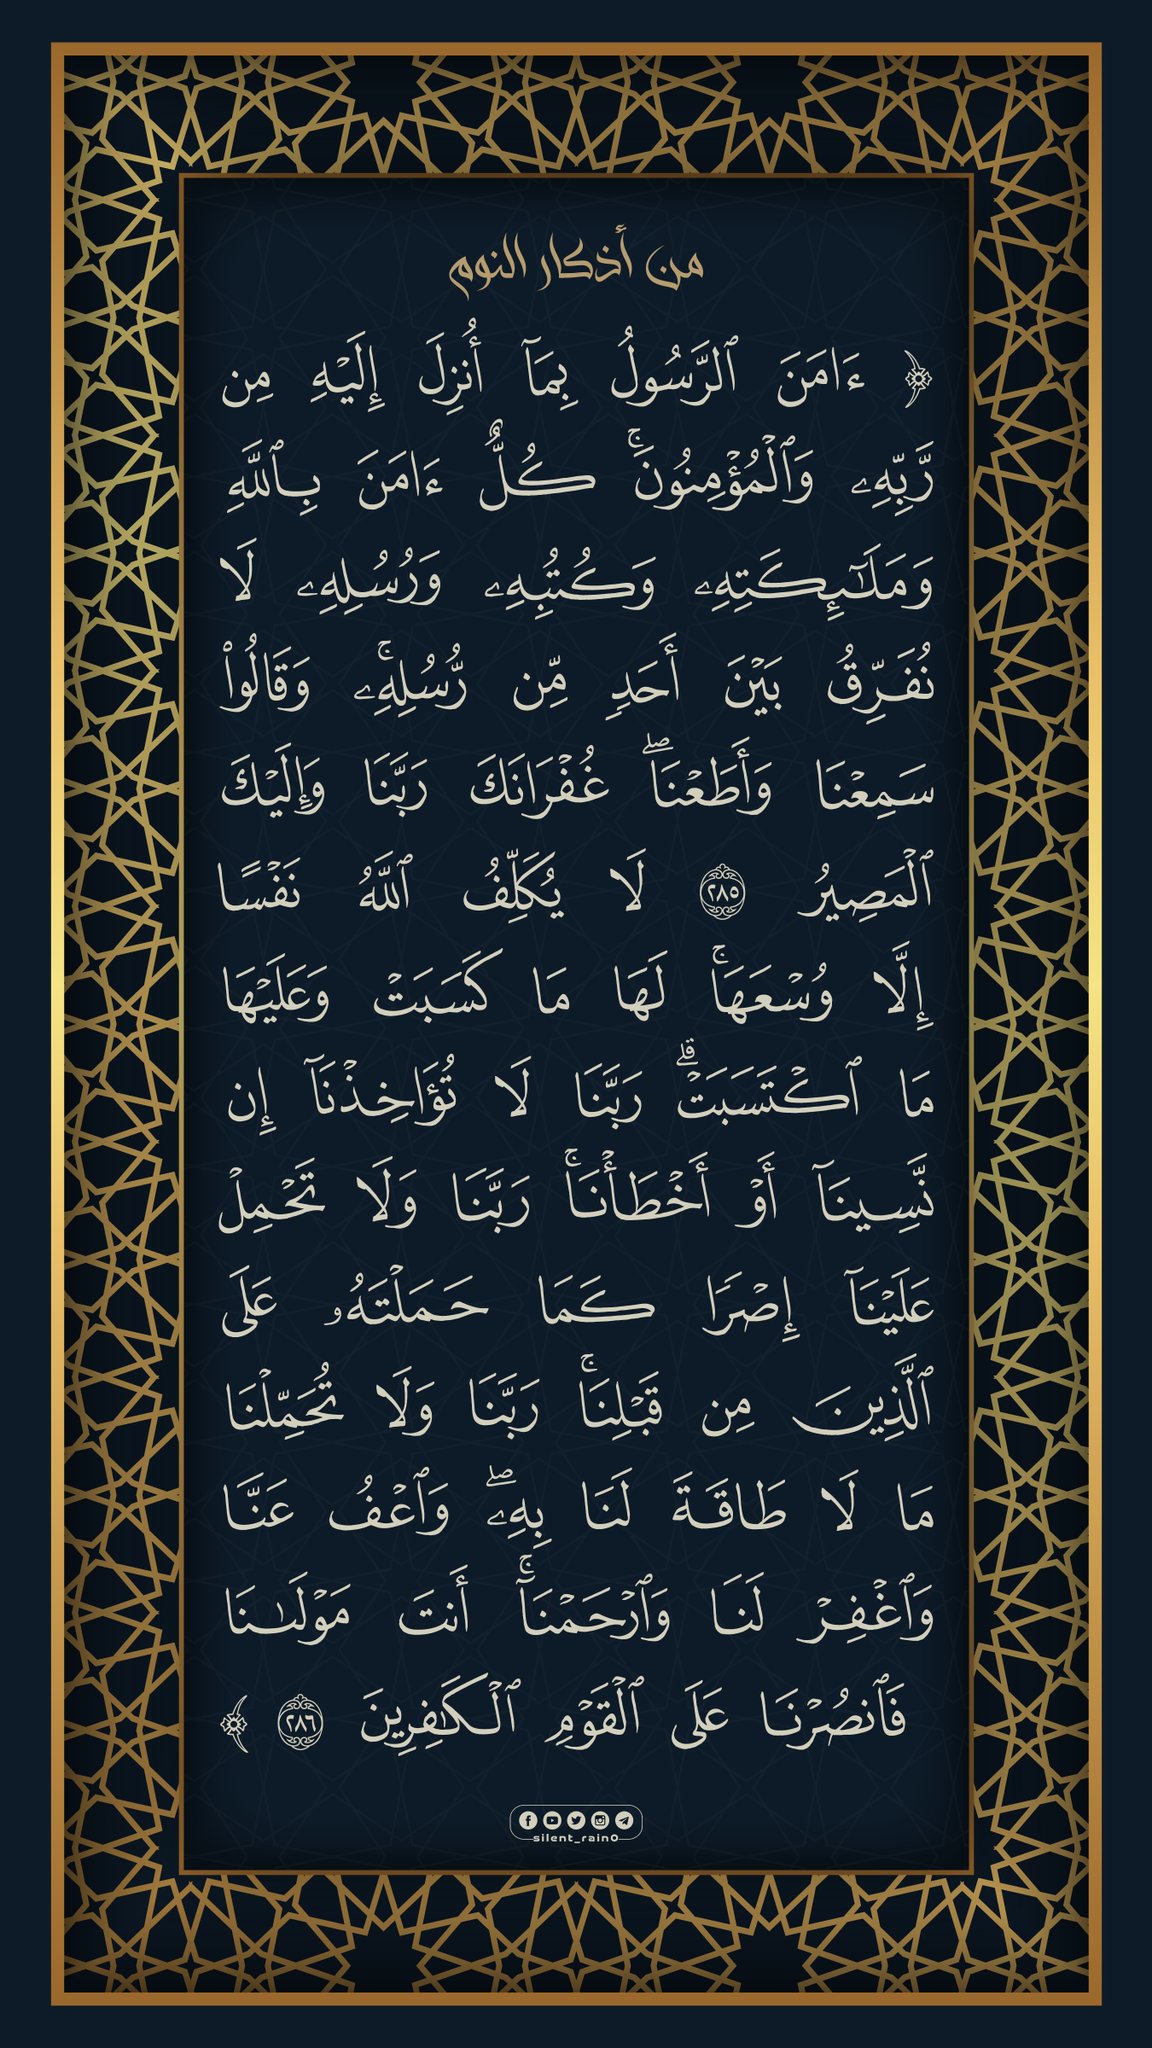 من أذكار النوم
﴿ ءَامَنَ ٱلرَّسُولُ بِمَآ أُنزِلَ إِلَيْهِ مِن
رَّبِّهِۦ وَٱلْمُؤْمِنُونَۚ كُلٌّ ءَامَنَ بِٱللَّهِ
وَمَلَـٰٓئِكَتِهِۦ وَكُتُبِهِۦ وَرُسُلِهِۦ لَا
نُفَرِّقُ بَيْنَ أَحَدٍ مِّن رُّسُلِهِۦۚ وَقَالُوا۟
سَمِعْنَا وَأَطَعْنَاۖ غُفْرَانَكَ رَبَّنَا وَإِلَيْكَ
ٱلْمَصِيرُ ٢٨٥ لَا يُكَلِّفُ ٱللَّهُ نَفْسًا
إِلَّا وُسْعَهَاۚ لَهَا مَا كَسَبَتْ وَعَلَيْهَا
مَا ٱكْتَسَبَتْۗ رَبَّنَا لَا تُؤَاخِذْنَآ إِن
نَّسِينَآ أَوْ أَخْطَأْنَاۚ رَبَّنَا وَلَا تَحْمِلْ
عَلَيْنَآ إِصْرًا كَمَا حَمَلْتَهُۥ عَلَى
ٱلَّذِينَ مِن قَبْلِنَاۚ رَبَّنَا وَلَا تُحَمِّلْنَا
مَا لَا طَاقَةَ لَنَا بِهِۦۖ وَٱعْفُ عَنَّا
وَٱغْفِرْ لَنَا وَٱرْحَمْنَآۚ أَنتَ مَوْلَىٰنَا
فَٱنصُرْنَا عَلَى ٱلْقَوْمِ ٱلْكَـٰفِرِينَ ٢٨٦ ﴾
silent_rain0